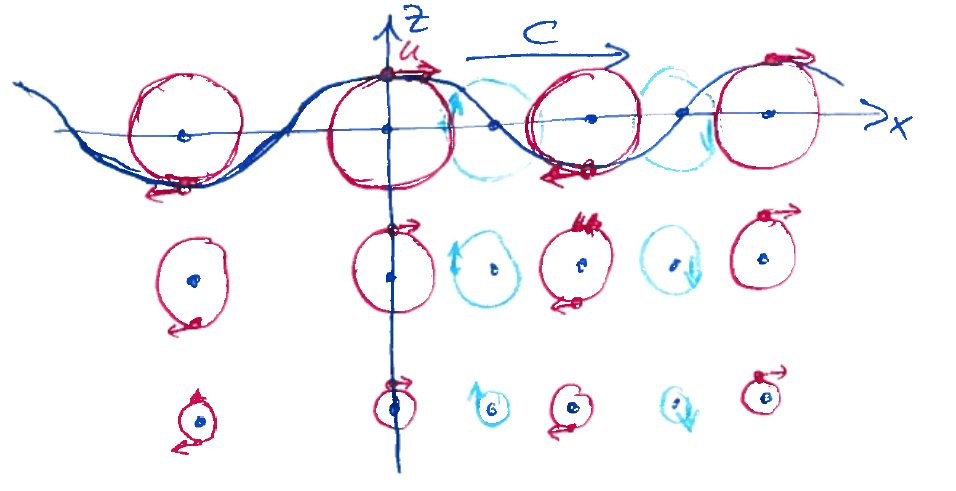 z
u
C
x